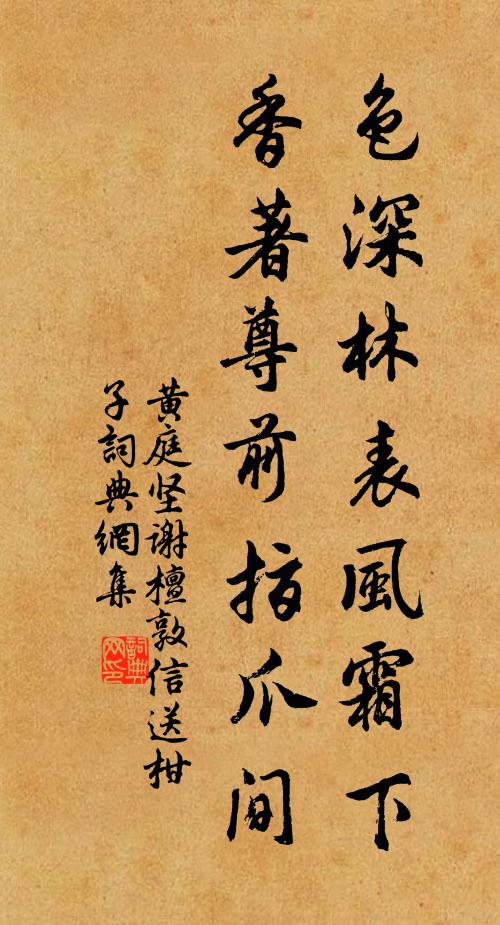 色深林表風霜下
香著尊前指爪间
黄庭坚谢檀敦信送柑
子詞典網集
詞典网印